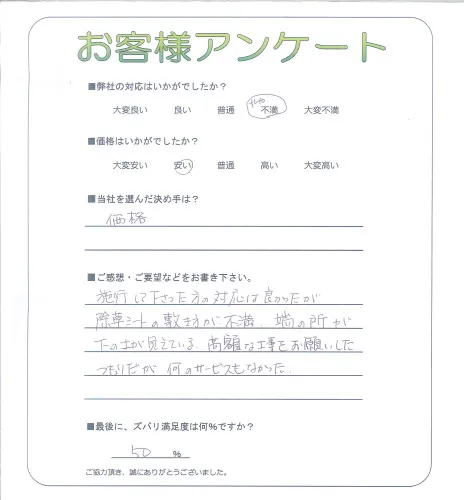 お客様アンケート
■弊社の対応はいかがでしたか?
大変良い 良い 普通 やや不満 大変不満
■価格はいかがでしたか?
大変安い 安い 普通 高い 大変高い
■当社を選んだ決め手は?
価格
■ご感想・ご要望などをお書き下さい。
施行して下さった方の対応は良かったが
除草シートの敷き方が不満、端の所が
下の土が見えている、高額な工事をお願いした
つもりだが何のサービスもなかった。
■最後に、ズバリ満足度は何%ですか?
50 %
ご協力頂き、誠にありがとうございました。